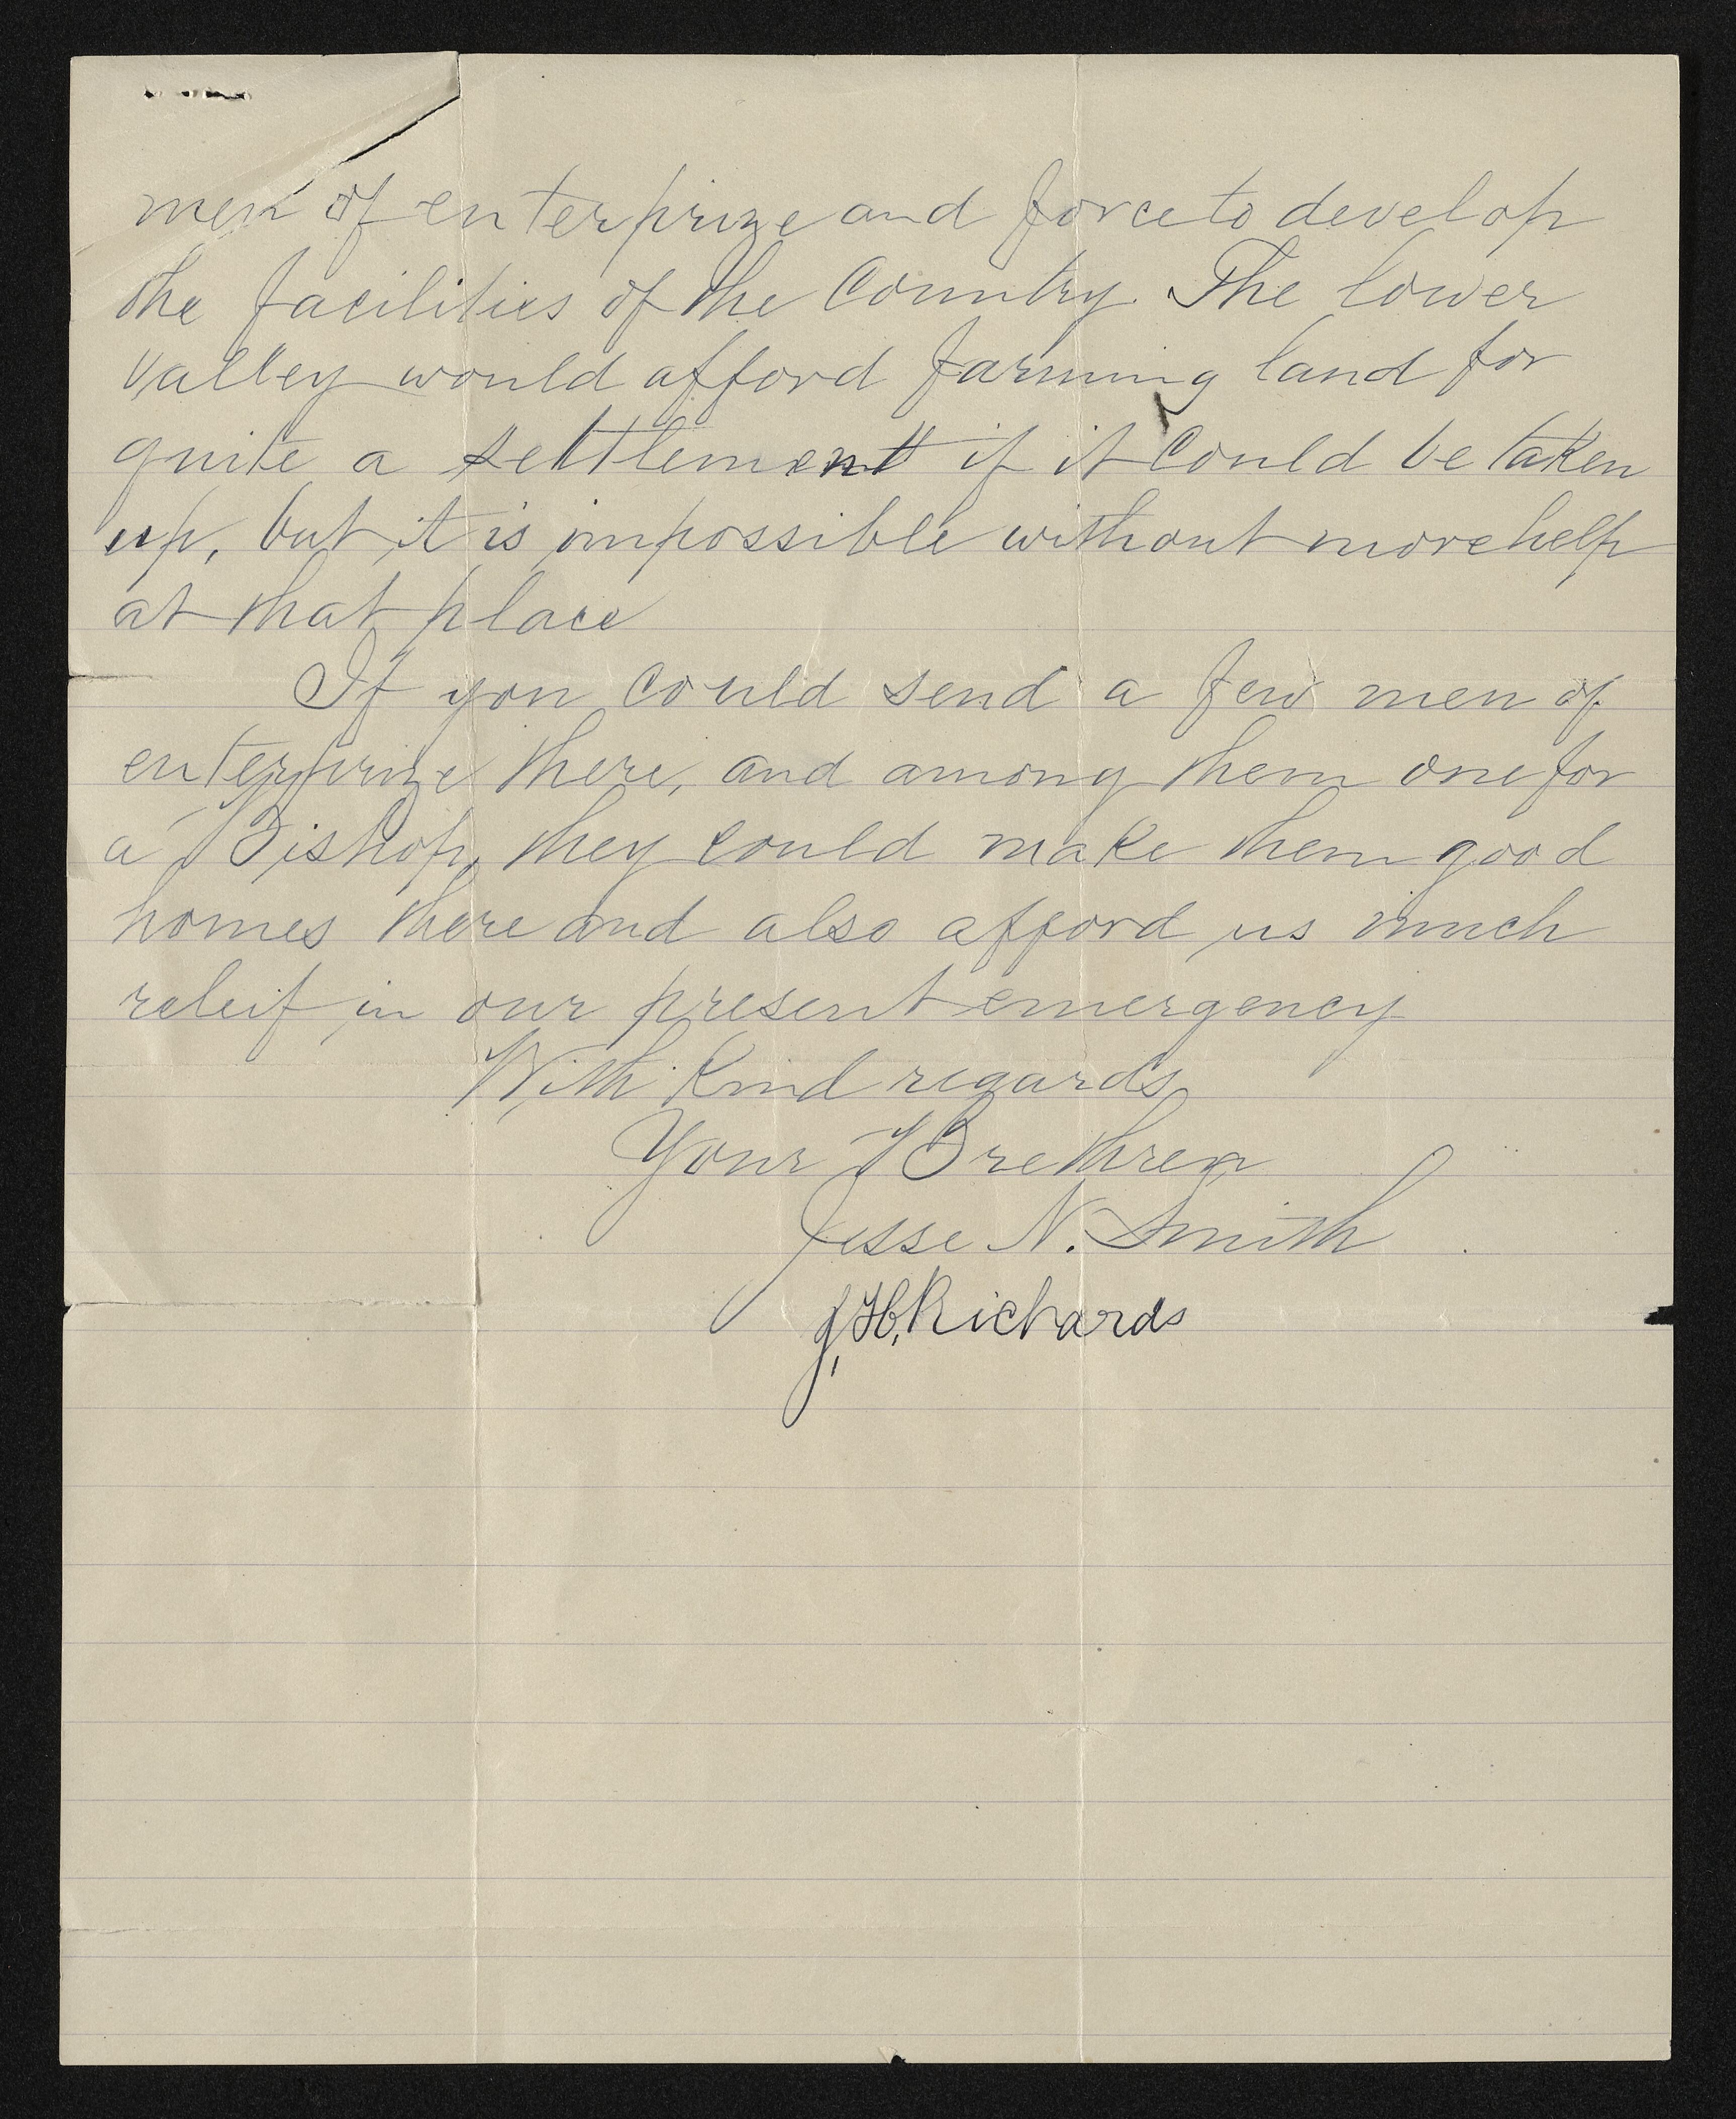 men of enterprize and force to develop
the facilities of the Country. The lower
valley would afford farming land for
quite a settlement if it Could be taken
up, but it is impossible without more help
at that place
If you Could send a few men of
enterprize there, and among them one for
a Bishop, they Could make them good
homes there and also afford us much
releif in our present emergency
With Kind regards
Your Brethren
Jesse N. Smith
J, H, Richards